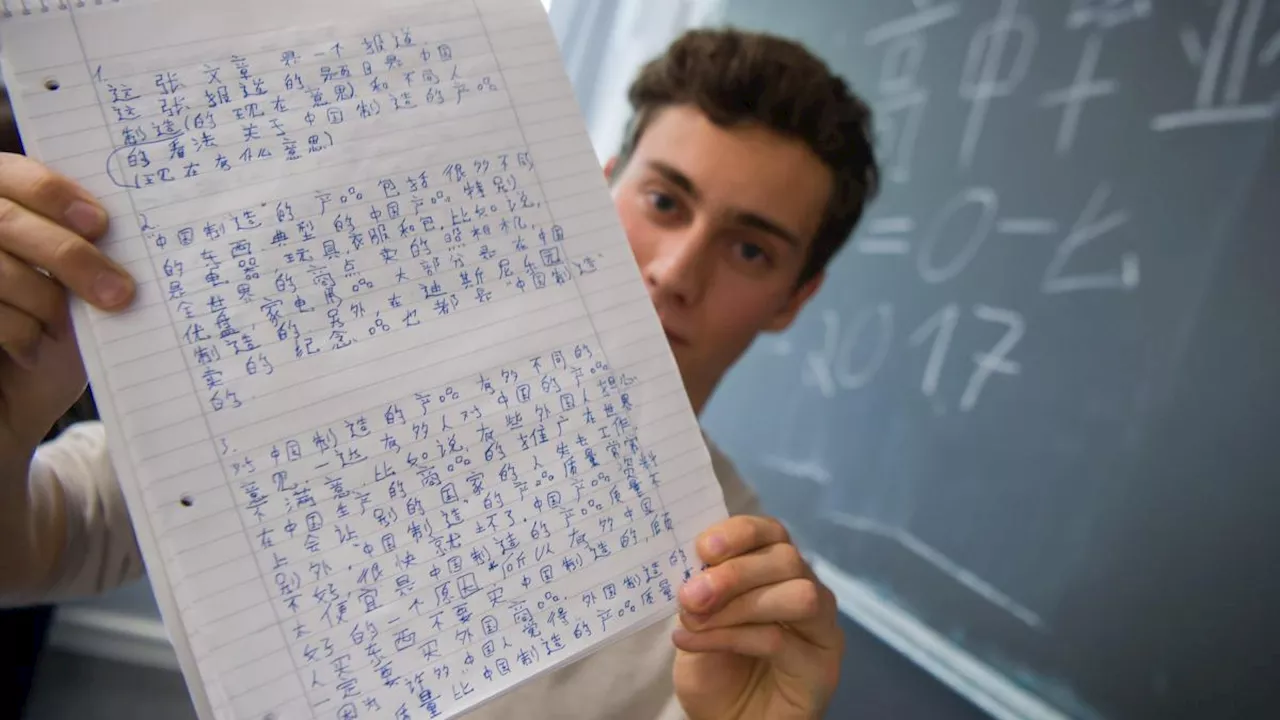 1.
这张文章是一个报道
这张报道的题目是中国
制造(的现在意思)和不同人
的看法关于中国制造的产品
(现在有什么意思)
2.
"中国制造"的产品包括很多不同
的东西典型的中国产品特别
是电器,玩具,衣服和包.比如说,
全世界的商点卖的照相机,
优盘,家电用品大部分是在中国
制造的.另外,在迪斯尼乐园
卖的纪念品也都是"中国制造"
的.
3.
对中国制造的产品有多不同的
意见.一边有多人对中国的产品
不满意.比如说,有些外国人担心
在中国生产的商品的推广在世界
上会让别的国家的人失去工作.
别外,"中国制造"的产品质量常常
不好,很快就坏了.中国产品
太便宜是中国制造的产品质量不
好的一个原因*所以有多中国
人买东西不要买中国制造的,
一定要买外国商品.
因为许多中国人觉得外国制造的
质量比"中国制造的产品质量
高中
=0一七
2017